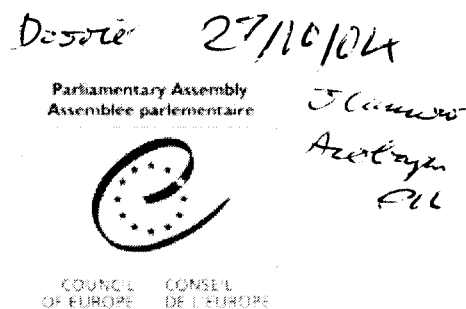 Dossier 27/10/04
Parliamentary Assembly
Assemblée parlementaire
COUNCIL CONSEIL
OF EUROPE DE L'EUROPE